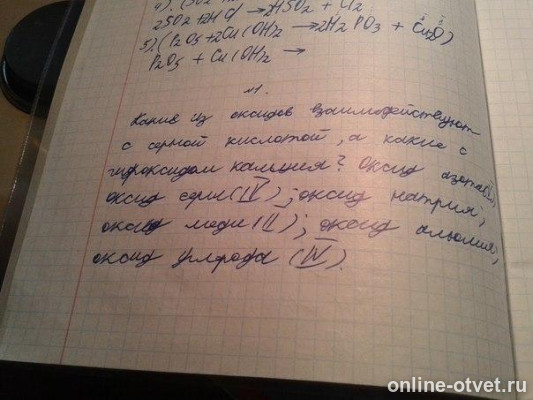 2SO2 + 2HCl → H2SO2 + Cl2
5) (P2O5 + 2Cu(OH)2 → 2H2PO3 + Cu2O)
P2O5 + Cu(OH)2 →
№1.
Какие из оксидов взаимодействуют
с серной кислотой, а какие с
гидроксидом кальция? Оксид азота
оксид серы (IV); оксид натрия;
оксид меди (II); оксид алюмия;
оксид углерода (IV).
online-otvet.ru